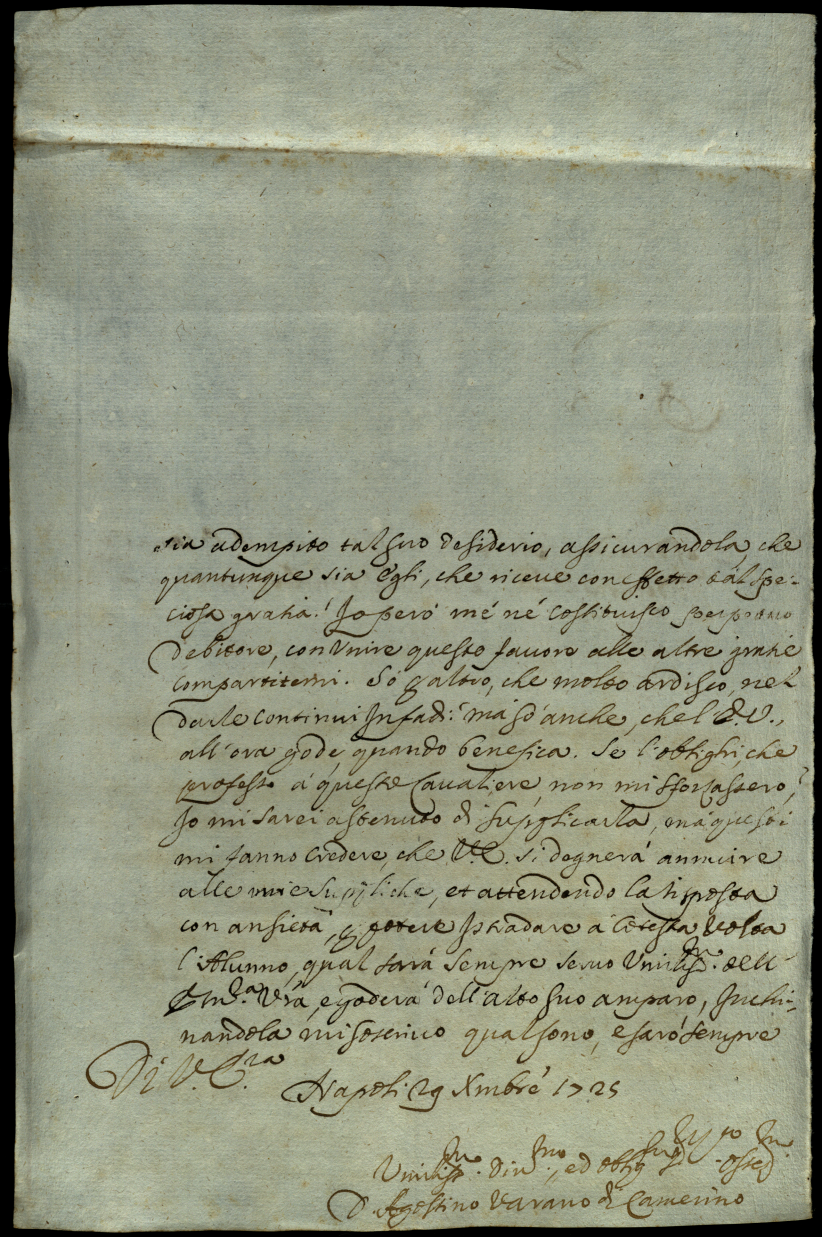 sia adempito tal suo desiderio, assicurandola, che
quantunque sia Egli, che riceve con effetto tal spe=
ciosa gratia! Io peró mé né costituisco perpetuo
debitore, con unire questo favore alle altre gratie
compartitemi. Só p altro, che molto ardisco, nel
darle continui Infadi: má só anche, che l'E.V.,
all'ora gode, quando benefica. Se l'oblighi, che
professo á questo Cavaliere, non mi sforzassero,
Io mi sarei astenuto di supplicarla, má questi
mi fanno credere, che V.E. si degnerá annuire
alle mie suppliche, et attendendo la risposta
con ansietá, p potere Istradare á cotesta volta
l'Alunno, qual sará sempre servo Umiliss.mo dell'
Em.za Vra, e goderá dell'alto suo amparo, Inchi=
nandola mi soscrivo qual sono, e saró sempre
Di V. E.za
Napoli 29 Xmbré 1725
Umiliss.mo Div.mo, ed oblig.
D. Agostino Varano di Camerino